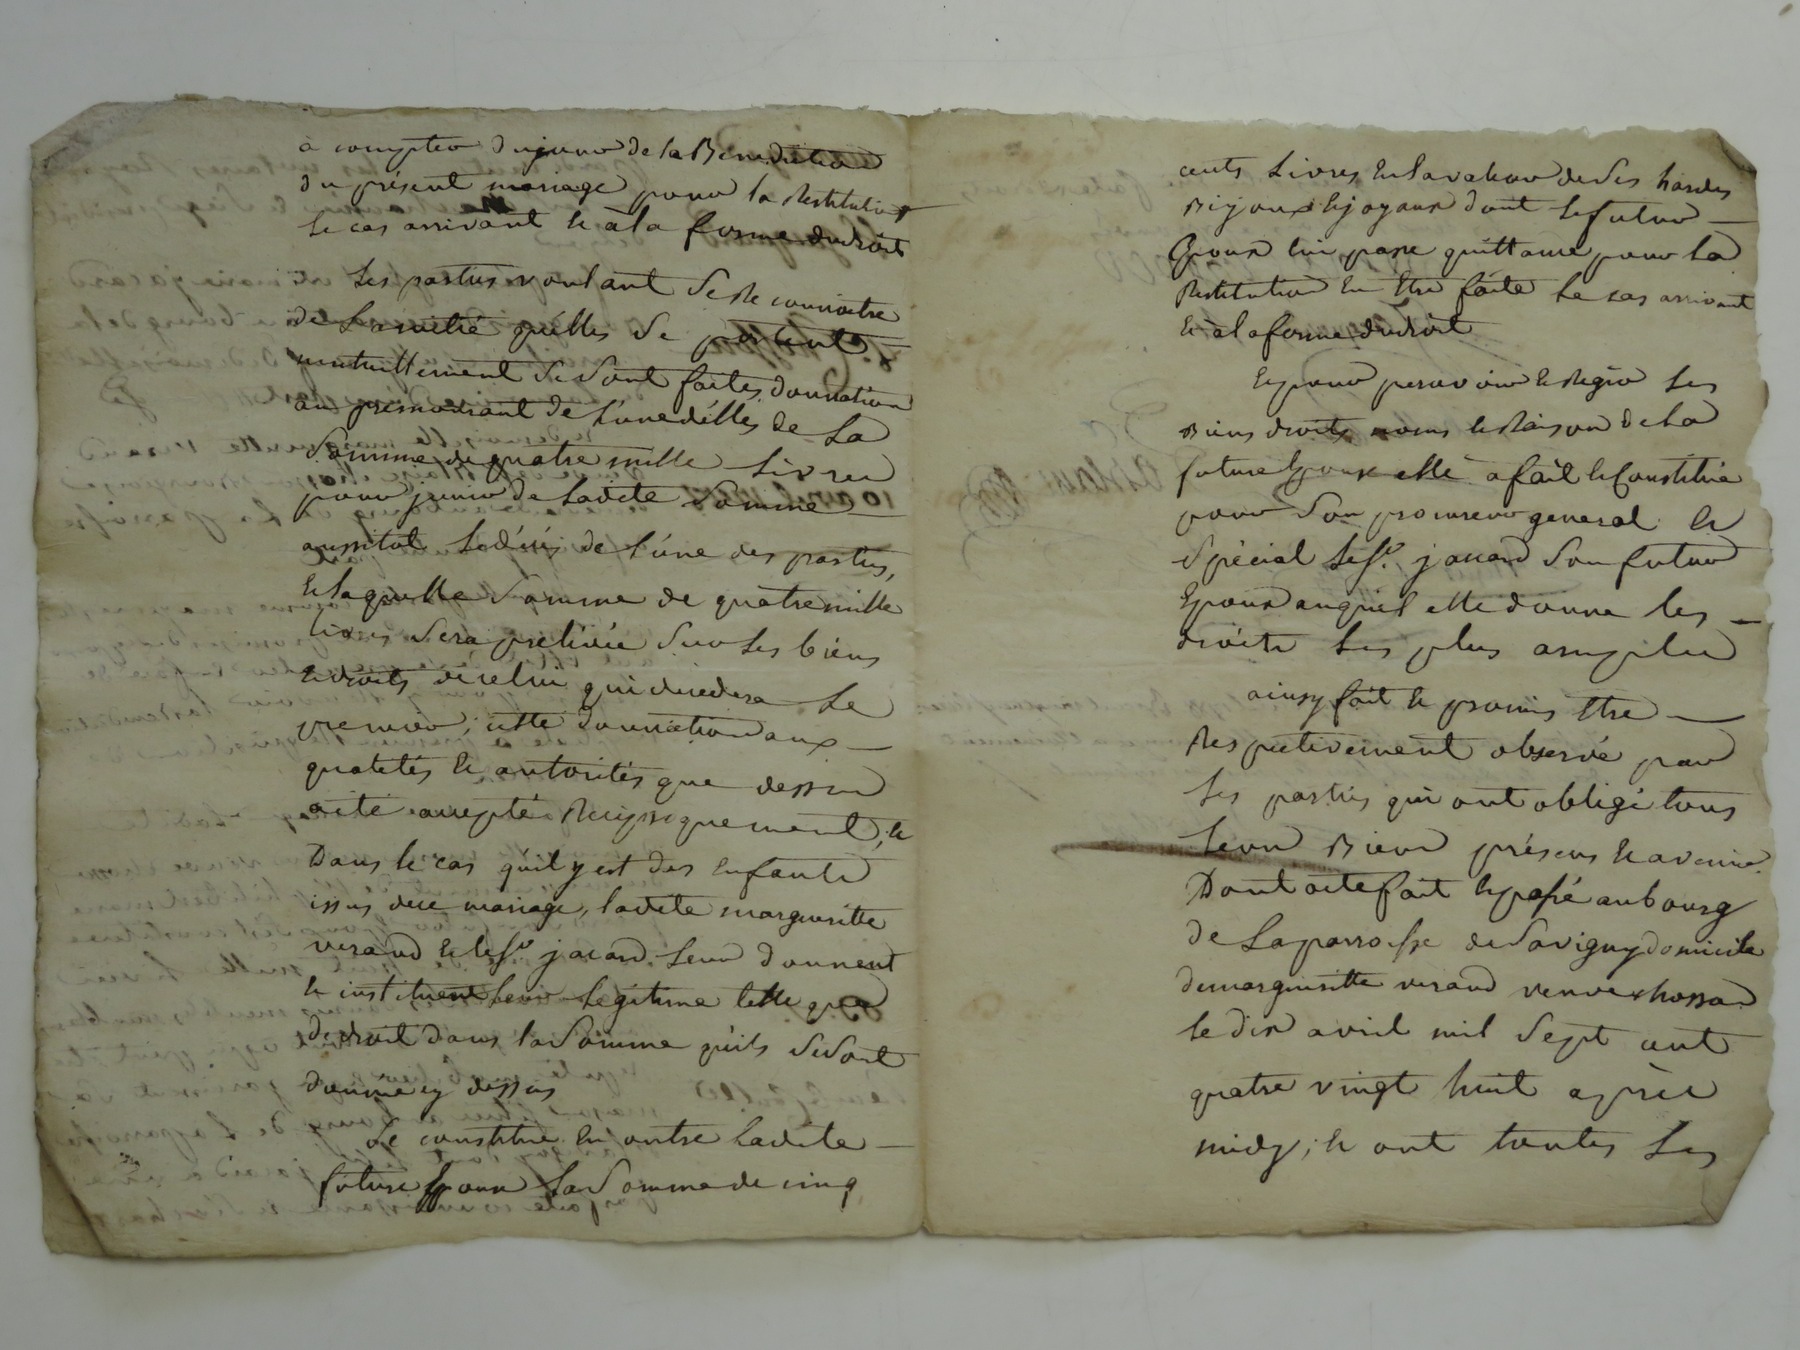 a compter du jour de la Benediction
du présent mariage pour la Restitution
le cas arrivant et a la forme du droit
Les parties voulant se Reconnoitre
de L'amitié qu'elles se portent
mutuellement se sont faites donnation
au premourant de l'une d'elles de La
Somme de quatre mille Livres
pour jouir de Ladite Somme
aussitot Le décès de l'une des parties,
Et laquelle Somme de quatre mille
livres sera prelévée sur Les biens
et droits de celui qui decedera Le
premier; cette donnation aux
qualetés et autorités que dessus
a été accepté Réciproquement, et
Dans le cas qu'il y est des Enfants
issus de ce mariage, ladite margueritte
verand et le Sr. jacard Leur donnent
et instituent Leur Légitime telle que
de droit dans la Somme qu'ils se sont
donnée cy dessus
Se constitue En outre Ladite
future Epouse La Somme de cinq
cents Livres En la valeur de Ses hardes
Bijoux et joyaux dont Le futur
Epoux lui passe quittance pour La
Restitution En Etre faite Le cas arrivant
Et a la forme du droit
Et pour percevoir et Regir Les
Biens droits noms et Raison de La
future Epouse elle a fait et Constitué
pour Son procureur general et
Spécial Le Sr. jacard Son futur
Epoux auquel elle donne les
droits Les plus amples
ainsy fait et promis Etre
Respectivement observé par
Les parties qui ont obligé tous
Leurs Biens présens et avenir
Dont acte fait et passé au bourg
de La parroisse de Savigny domicile
de margueritte verand veuve chossar
le dix avril mil Sept cent
quatre vingt huit après
midy; et ont toutes Les